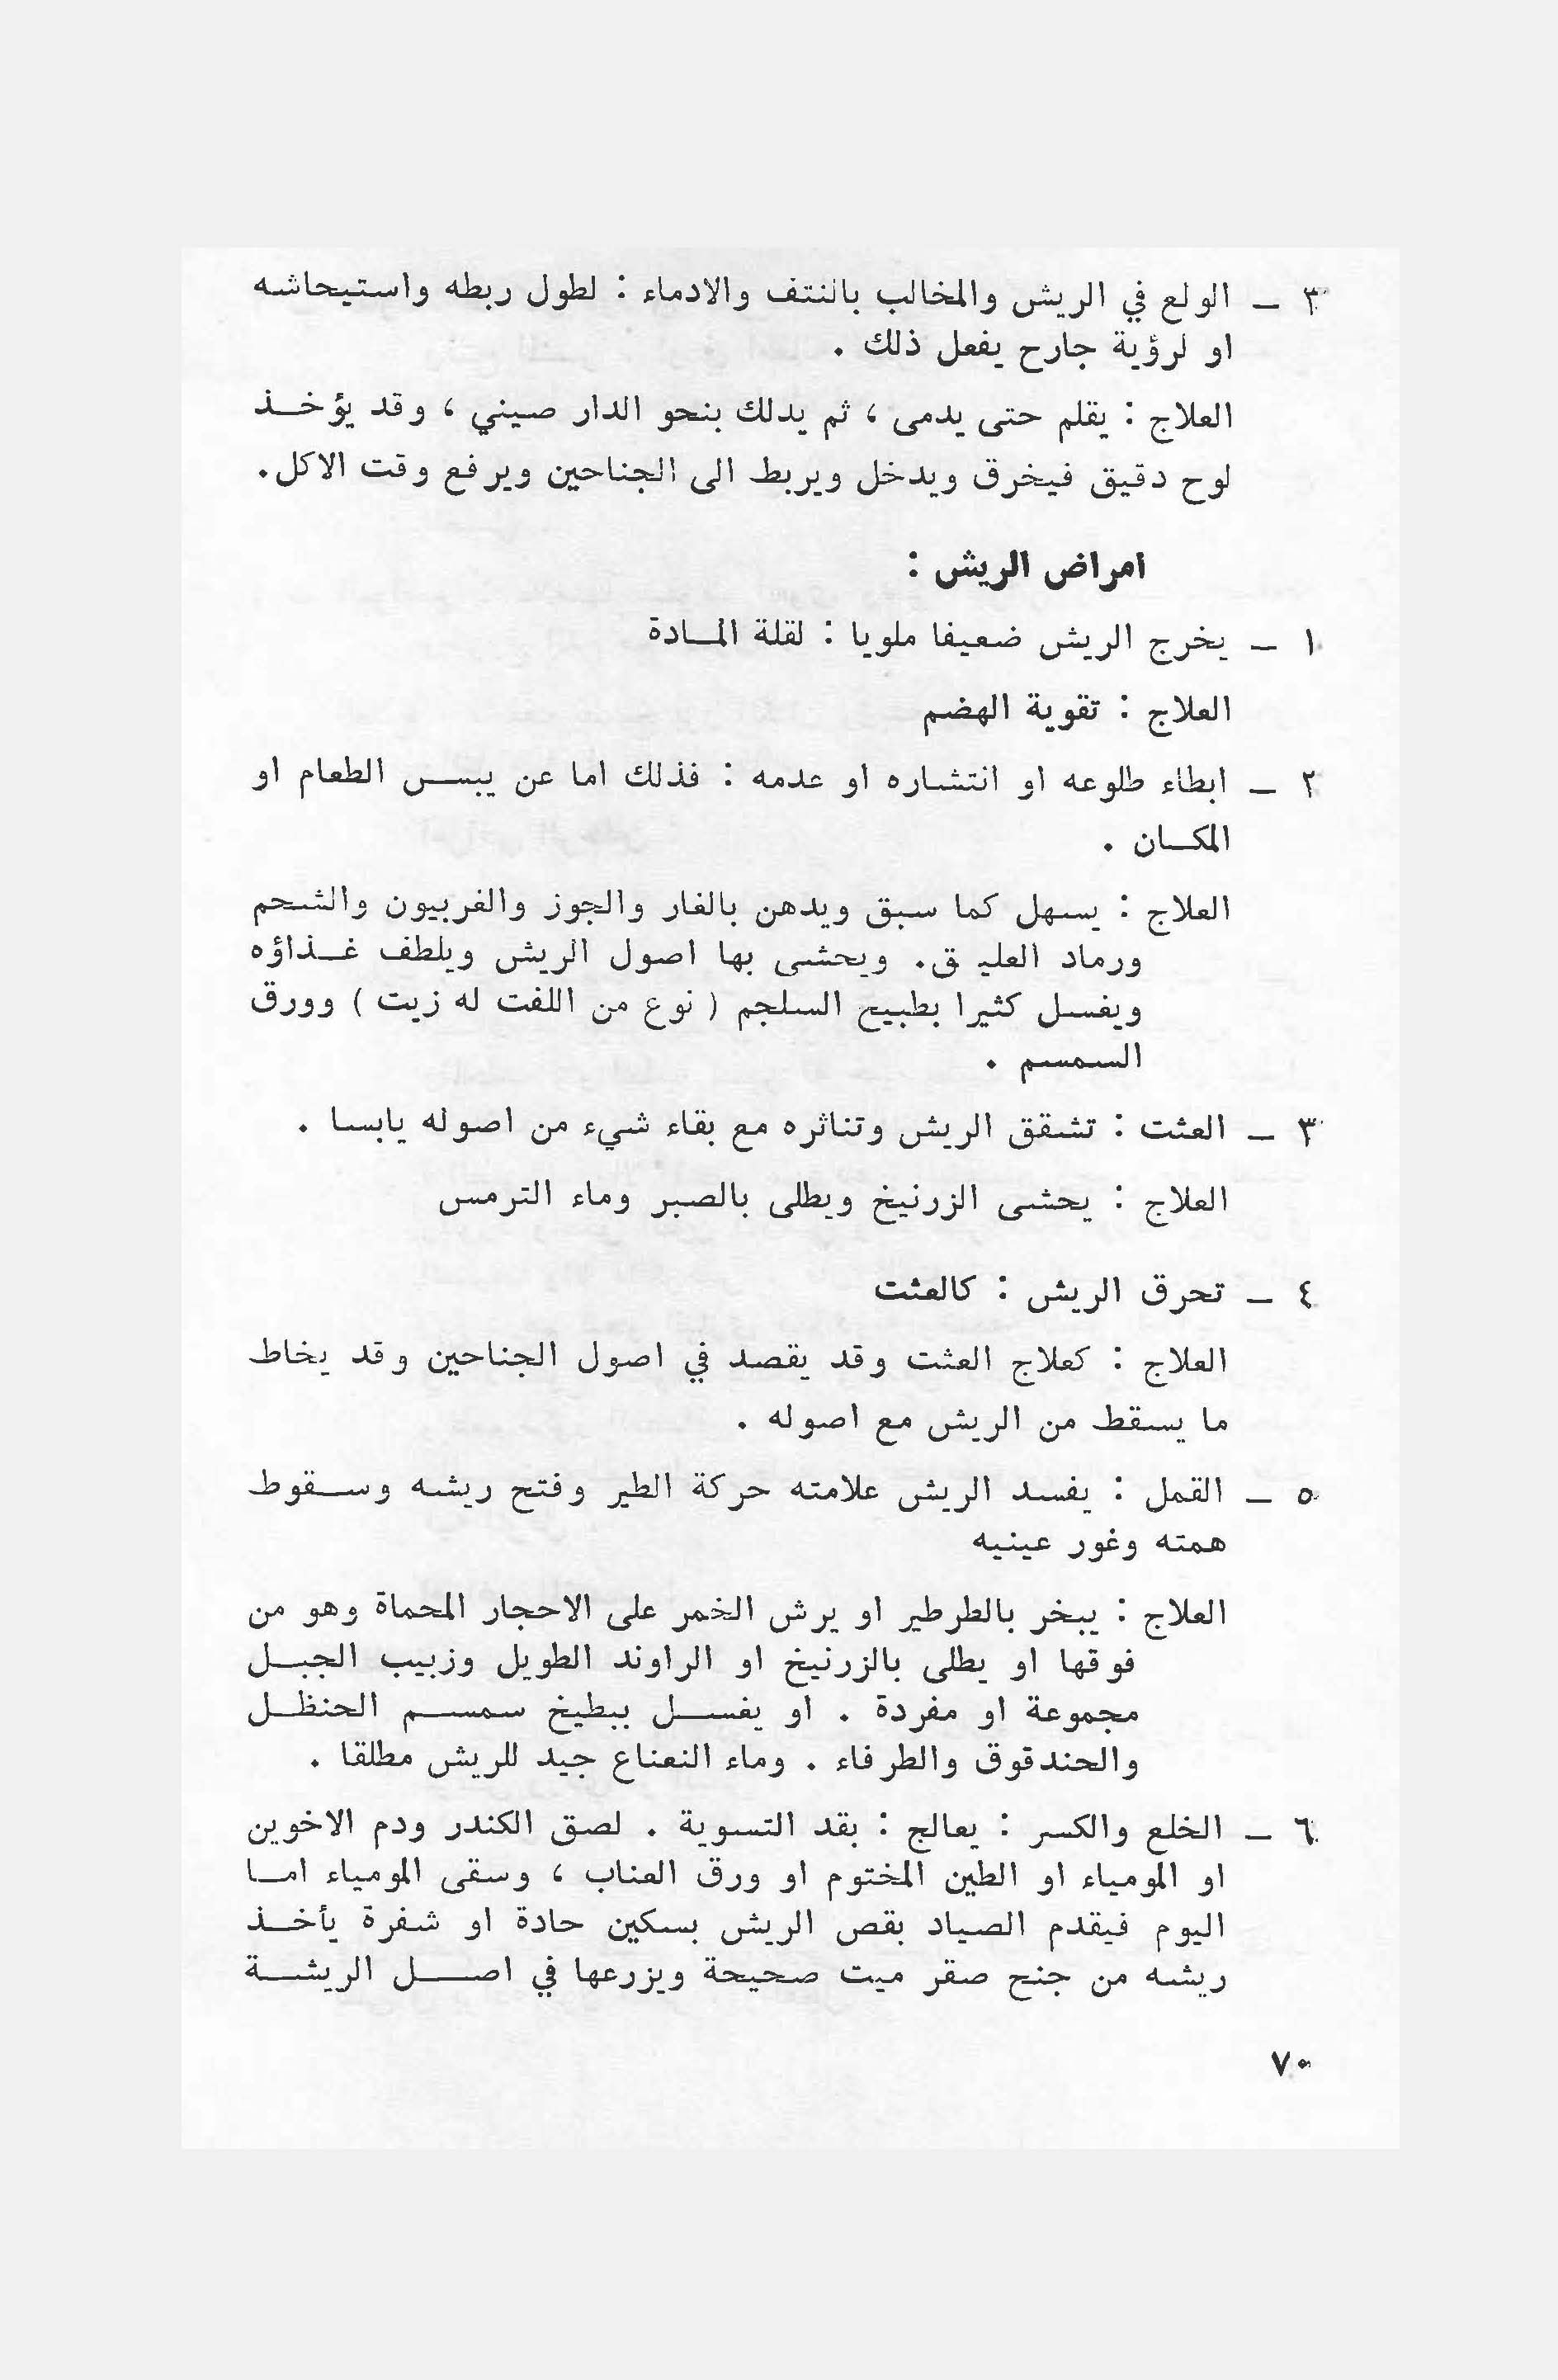 ٣ ـ الولع في الريش والمخالب بالنتف والادماء : لطول ربطه واستيحاشه
او لرؤية جارح يفعل ذلك .
العلاج : يقلم حتى يدمى ، ثم يدلك بنحو الدار صيني ، وقد يؤخـذ
لوح دقيق فيخرق ويدخل ويربط الى الجناحين ويرفع وقت الاكل.
امراض الريش :
١ ـ يخرج الريش ضعيفا ملويا : لقلة المـادة
العلاج : تقوية الهضم
٢ ـ ابطاء طلوعه او انتشاره او عدمه : فذلك اما عن يبس الطعام او
المكـان .
العلاج : يسهل كما سبق ويدهن بالغار والجوز والفربيون والشحم
ورماد العليـ ق. ويحشى بها اصول الريش ويلطف غـذاؤه
ويغسل كثيرا بطبيح السلجم ( نوع من اللفت له زيت ) وورق
السمسم .
٣ ـ العثت : تشقق الريش وتناثره مع بقاء شيء من اصوله يابسا .
العلاج : يحشى الزرنيخ ويطلى بالصبر وماء الترمس
٤ ـ تحرق الريش : كالعثت
العلاج : كعلاج العثت وقد يقصد في اصول الجناحين وقد يخاط
ما يسقط من الريش مع اصوله .
٥ ـ القمل : يفسد الريش علامته حركة الطير وفتح ريشه وسـقوط
همته وغور عينيه
العلاج : يبخر بالطرطير او يرش الخمر على الاحجار المحماة وهو من
فوقها او يطلى بالزرنيخ او الراوند الطويل وزبيب الجبـل
مجموعة او مفردة . او يغسـل ببطيخ سمسـم الحنظـل
والحندقوق والطرفاء . وماء النعناع جيد للريش مطلقا .
٦ ـ الخلع والكسر : يعالج : بقد التسوية . لصق الكندر ودم الاخوين
او المومياء او الطين المختوم او ورق العناب ، وسقى المومياء امـا
اليوم فيقدم الصياد بقص الريش بسكين حادة او شفرة يأخـذ
ريشه من جنح صقر ميت صحيحة ويزرعها في اصـل الريشـة
٧٠